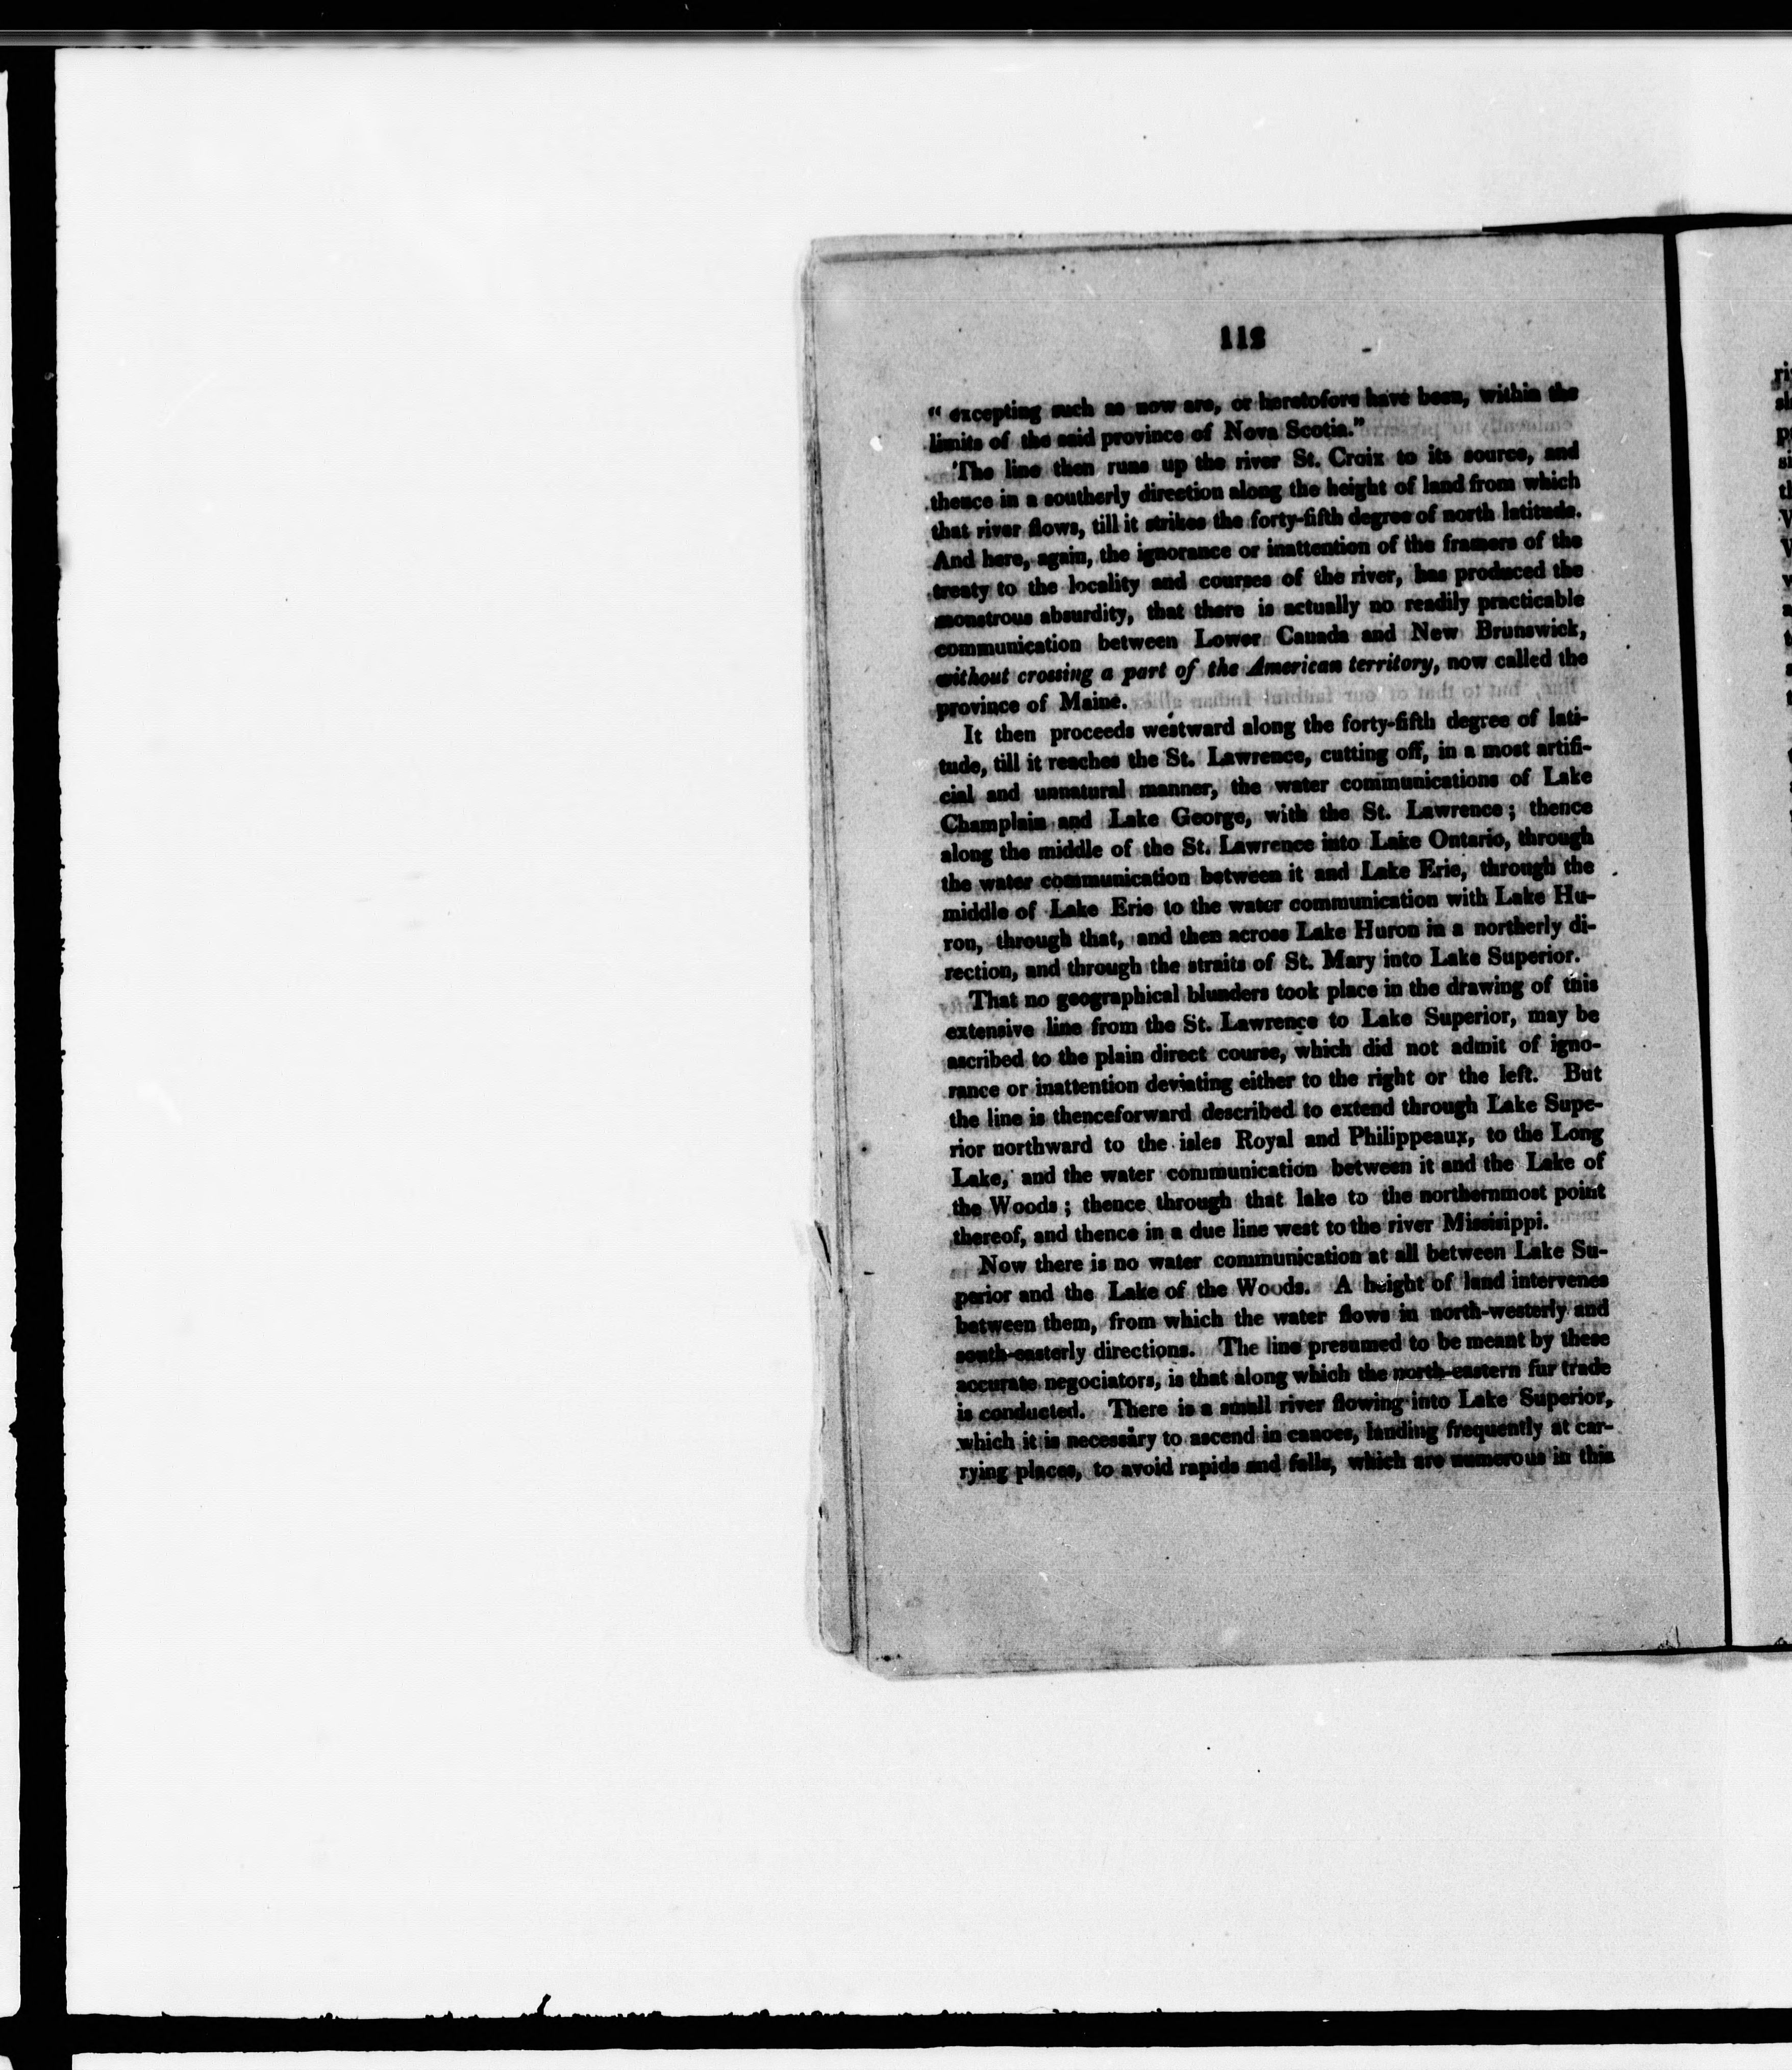 112
“ excepting such as now are, or heretofore have been, within the
limits of the said province of Nova Scotia.”
The line then runs up the river St. Croix to its source, and
thence in a southerly direction along the height of land from which
that river flows, till it strikes the forty-fifth degree of north latitude.
And here, again, the ignorance or inattention of the framers of the
treaty to the locality and courses of the river, has produced the
monstrous absurdity, that there is actually no readily practicable
communication between Lower Canada and New Brunswick,
without crossing a part of the American territory, now called the
province of Maine.
It then proceeds westward along the forty-fifth degree of lati-
tude, till it reaches the St. Lawrence, cutting off, in a most artifi-
cial and unnatural manner, the water communications of Lake
Champlain and Lake George, with the St. Lawrence; thence
along the middle of the St. Lawrence into Lake Ontario, through
the water communication between it and Lake Erie, through the
middle of Lake Erie to the water communication with Lake Hu-
ron, through that, and then across Lake Huron in a northerly di-
rection, and through the straits of St. Mary into Lake Superior.
That no geographical blunders took place in the drawing of this
extensive line from the St. Lawrence to Lake Superior, may be
ascribed to the plain direct course, which did not admit of igno-
rance or inattention deviating either to the right or the left. But
the line is thenceforward described to extend through Lake Supe-
rior northward to the isles Royal and Philippeaux, to the Long
Lake, and the water communication between it and the Lake of
the Woods; thence through that lake to the northernmost point
thereof, and thence in a due line west to the river Missisippi.
Now there is no water communication at all between Lake Su-
perior and the Lake of the Woods. A height of land intervenes
between them, from which the water flows in north-westerly and
south-easterly directions. The line presumed to be meant by these
accurate negociators, is that along which the north-eastern fur trade
is conducted. There is a small river flowing into Lake Superior,
which it is necessary to ascend in canoes, landing frequently at car-
rying places, to avoid rapids and falls, which are numerous in this